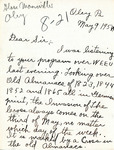 Glen Monville
Oley
8-21
Oley Pa
May 9 1950
Dear Sir,
I was listening
to your program over WEEU
last evening. Looking over
Old Almanacs of 1823, 1844
1852 and 1865 all in German
print, the Invasion of the
Cross always comes on the
third of May, no matter
which day of the week.
marked by a Cross in
the old Almanacs